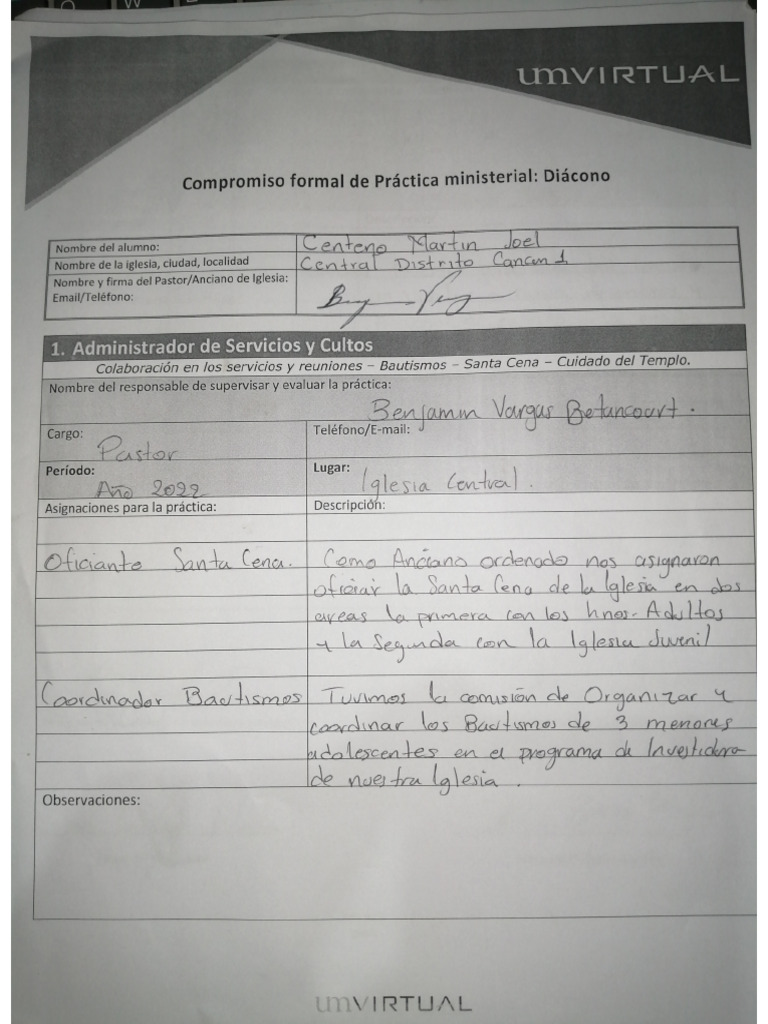 umVIRTUAL
Compromiso formal de Práctica ministerial: Diácono
Nombre del alumno: Centeno Martin Joel
Nombre de la iglesia, ciudad, localidad Central Distrito Cancun 1
Nombre y firma del Pastor/Anciano de Iglesia:
Email/Teléfono:
1. Administrador de Servicios y Cultos
Colaboración en los servicios y reuniones – Bautismos – Santa Cena – Cuidado del Templo.
Nombre del responsable de supervisar y evaluar la práctica:
Benjamin Vargas Betancourt.
Cargo: Pastor
Teléfono/E-mail:
Período: Año 2022
Lugar: Iglesia Central.
Asignaciones para la práctica: Descripción:
Oficiante Santa Cena. Como Anciano ordenado nos asignaron
oficiar la Santa Cena de la Iglesia en dos
areas la primera con los hnos. Adultos
y la Segunda con la Iglesia Juvenil
Coordinador Bautismos Tuvimos la comisión de Organizar y
coordinar los Bautismos de 3 menores
adolescentes en el programa de Investidura
de nuestra Iglesia.
Observaciones:
umVIRTUAL